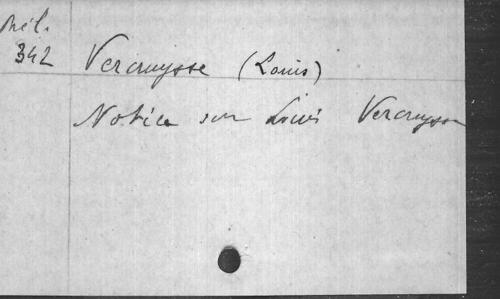 Mél.
342 Vercruysse (Louis)
Notice sur Louis Vercruysse